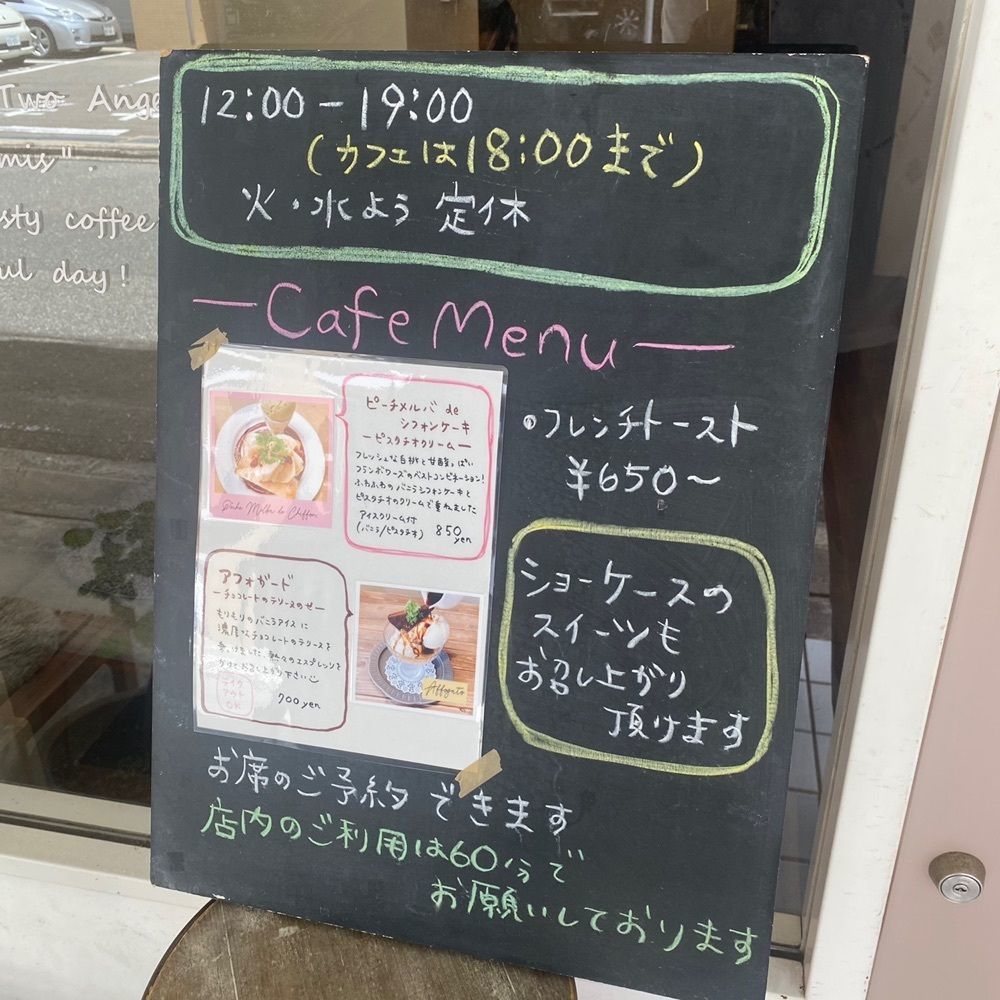 Two
mis".
sty coffee
ul day!
12:00-19:00
(カフェは18:00まで)
火・水よう 定休
-Cafe Menu-
ピーチメルバ de
シフォンケーキ
ーピスタチオクリームー
フレッシュな白桃と甘酸っぱい
フランボワーズのベストコンビネーション!
ふわふわのバニラシフォンケーキと
ピスタチオのクリームで重ねました
アイスクリーム付
(バニラ/ピスタチオ) 850
yen
アフォガード
ーチョコレートのテリーヌのせー
もりもりのバニラアイスに
濃厚なチョコレートのテリーヌを
のエスプレッソを
かけてお召し上がり下さい
テイク
アウト
OK
700yen
Affogato
・フレンチトースト
¥650〜
ショーケースの
スイーツも
お召し上がり
頂けます
お席のご予約できます
店内のご利用は60分で
お願いしております